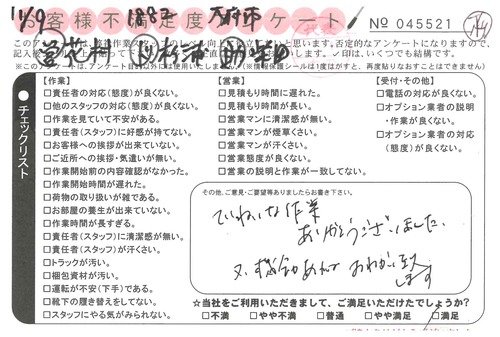 11/9 1883 大府市
お客様不満足度アンケート
№ 045521
※このアンケートは、アンケート目的以外には使用いたしません。(※情報保護シール1度はがすと、再度貼りなおすことはできません)
チェックリスト
【作業】
□責任者の対応(態度)が良くない。
□他のスタッフの対応(態度)が良くない。
□作業を見ていて不安がある。
□責任者(スタッフ)に好感が持てない。
□お客様への挨拶が出来ていない。
□ご近所への挨拶・気遣いが無い。
□作業開始前の内容確認がなかった。
□作業開始時間が遅れた。
□荷物の取り扱いが雑である。
□お部屋の養生が出来ていない。
□作業時間が長すぎる。
□責任者(スタッフ)に清潔感が無い。
□責任者(スタッフ)が汗くさい。
□トラックが汚い。
□梱包資材が汚い。
□運転が不安(下手)である。
□靴下の履き替えをしてない。
□スタッフにやる気がみられない。
【営業】
□見積もり時間に遅れた。
□見積もり時間が長い。
□営業マンに清潔感が無い。
□営業マンが煙草くさい。
□営業マンが汗くさい。
□営業態度が良くない。
□営業の説明と作業が一致してない。
【受付・その他】
□電話の対応が良くない。
□オプション業者の説明
・作業が良くない。
□オプション業者の対応
(態度)が良くない。
その他、ご意見・ご要望等ありましたらお書き下さい。
ていねいな作業
ありがとうございました。
又、機会あれば お願い致
します
☆当社をご利用いただきまして、ご満足いただけたでしょうか?
□不満 □やや不満 □普通 □やや満足 □満足